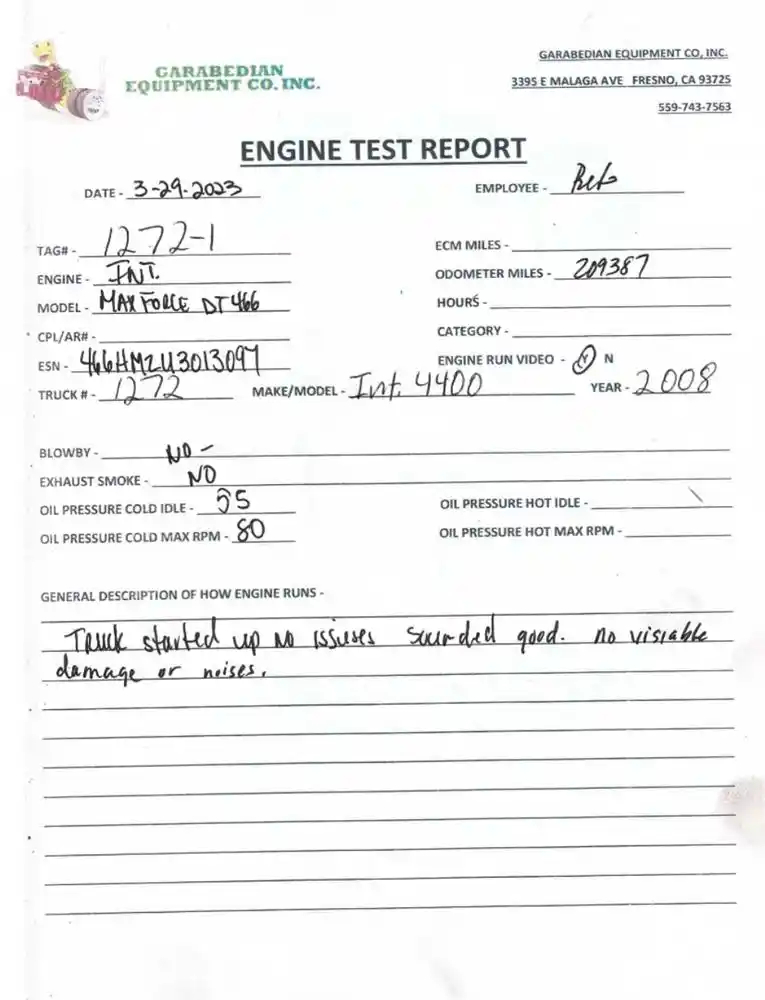 GARABEDIAN
EQUIPMENT CO. INC.
GARABEDIAN EQUIPMENT CO, INC.
3395 E MALAGA AVE FRESNO, CA 93725
559-743-7563
ENGINE TEST REPORT
DATE - 3-29-2023
EMPLOYEE -
TAG# - 1272-1
ECM MILES -
ENGINE - INT.
ODOMETER MILES - 209387
MODEL - MAX FORCE DT 466
HOURS -
CPL/AR# -
CATEGORY -
ESN - 466HM2U3013097
ENGINE RUN VIDEO - Y N
TRUCK # - 1272 MAKE/MODEL - Int. 4400 YEAR - 2008
BLOWBY - NO -
EXHAUST SMOKE - NO
OIL PRESSURE COLD IDLE - 55
OIL PRESSURE HOT IDLE -
OIL PRESSURE COLD MAX RPM - 80
OIL PRESSURE HOT MAX RPM -
GENERAL DESCRIPTION OF HOW ENGINE RUNS -
Truck started up no issuses sounded good. no visiable
damage or noises.